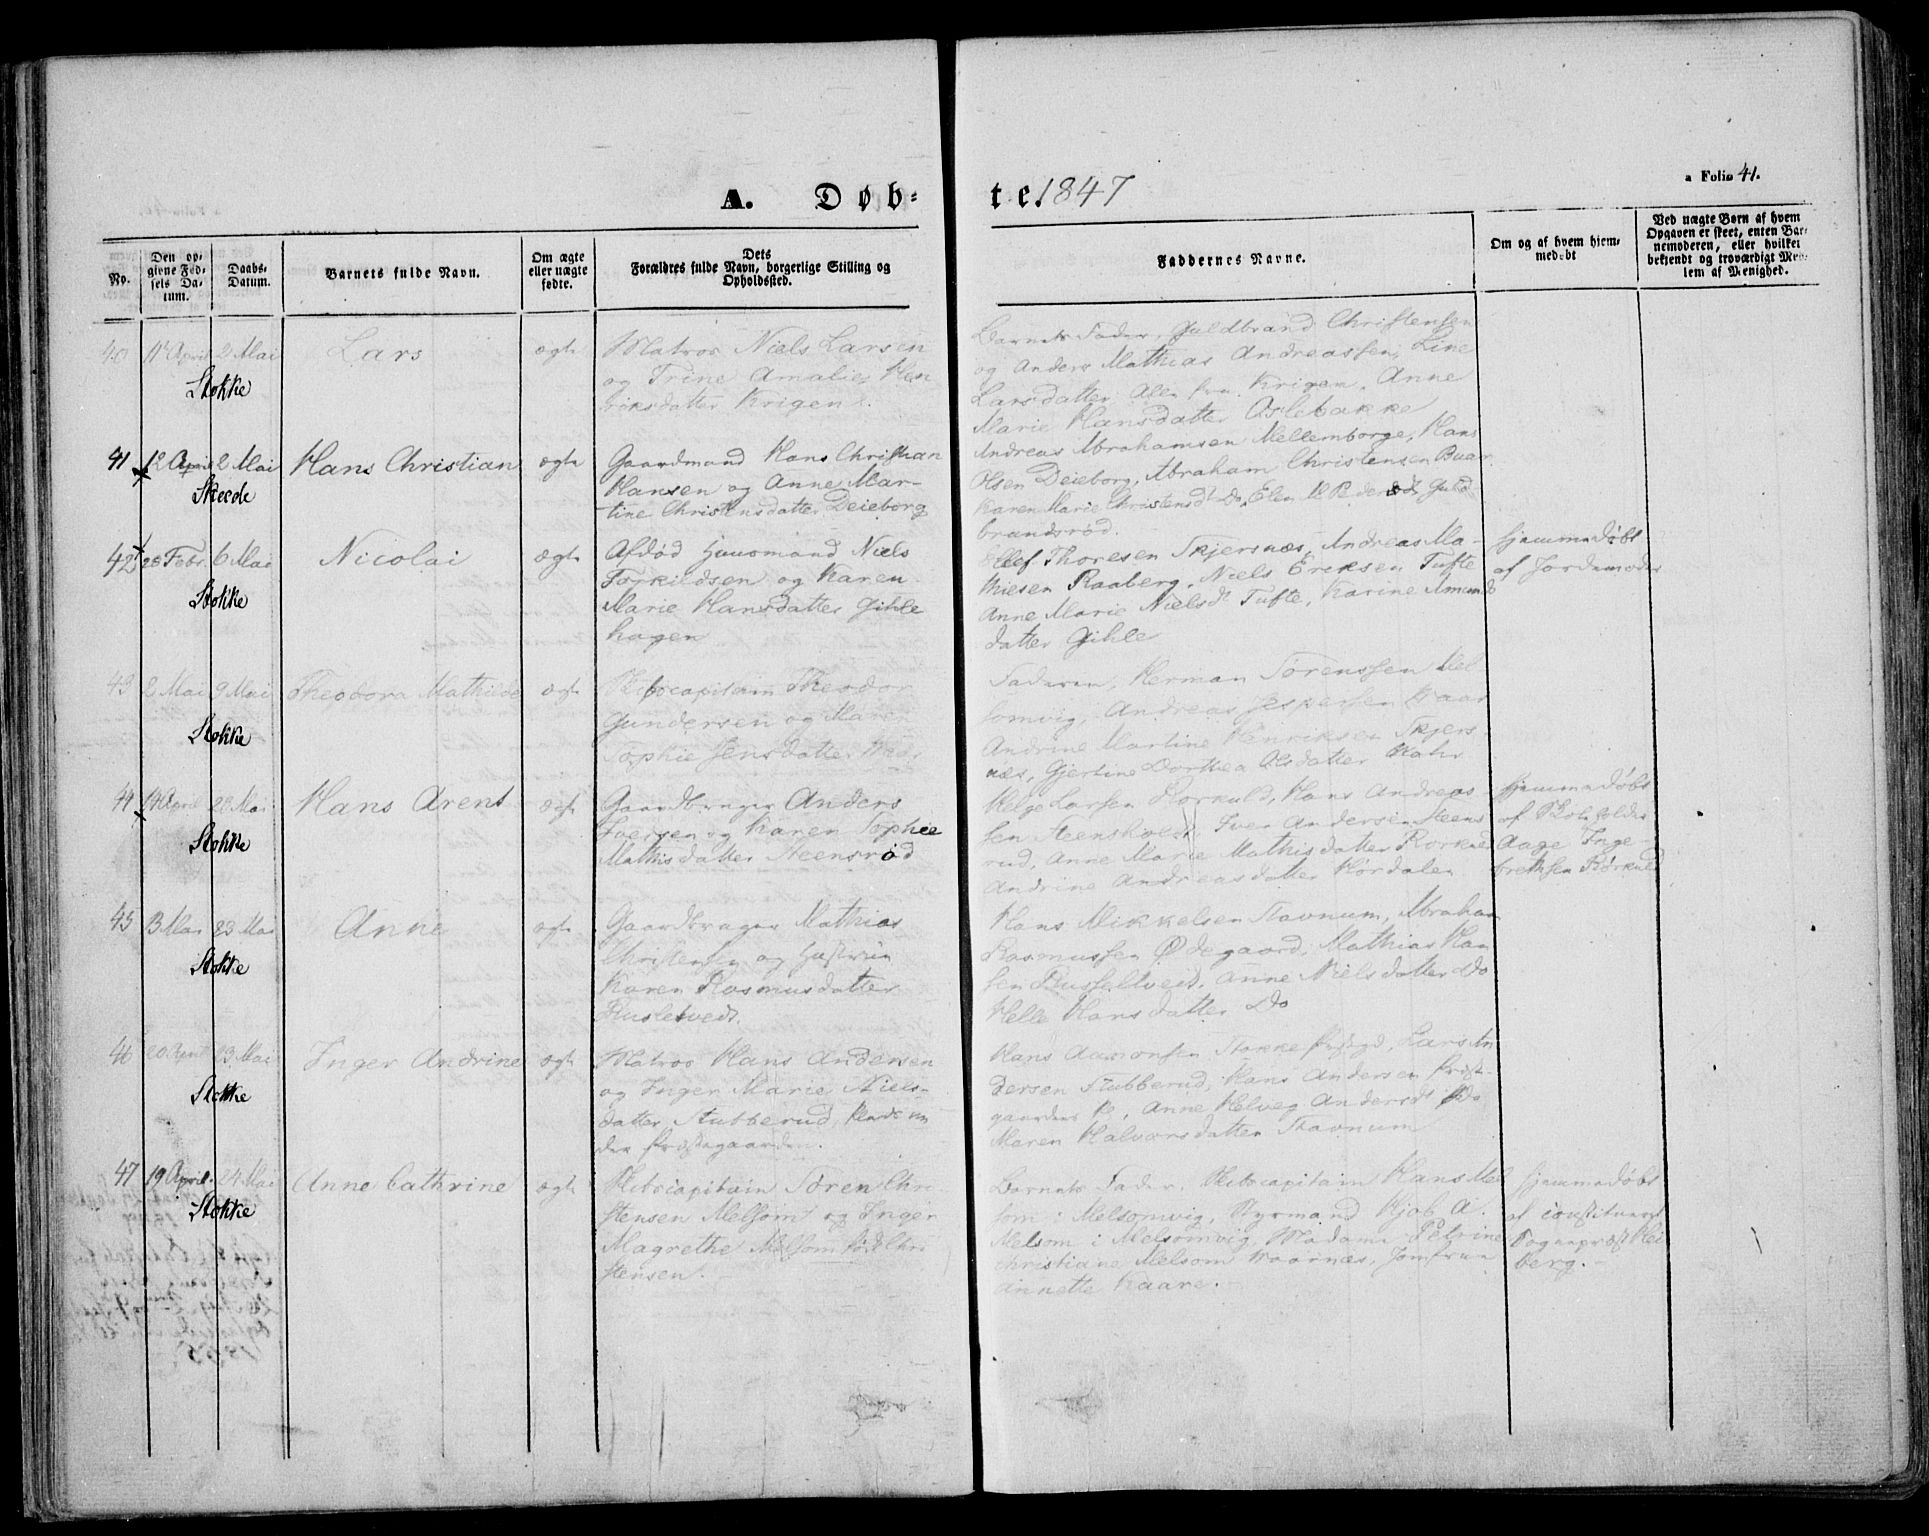 a Folio 41.
A. Døb-
te. 1847
No.
Den op-
givne Fød-
sels Da-
tum.
Daabs-
Datum.
Barnets fulde Navn.
Om ægte
eller uægte
fødte.
Dets
Forældres fulde Navn, borgerlige Stilling og
Opholdssted.
Faddernes Navne.
Om og af hvem hjem-
medøbt
Ved uægte Børn af hvem
Opgaven er skeet, enten Bar-
nemoderen, eller hvilket
bekjendt og troværdigt Med-
lem af Menighed.
40 11 April 2 Mai Lars ægte
Stokke
Matros Niels Larsen
og Trine Amalie Hen
riksdatter Krigen.
Barnets Fader, Guldbrand Christensen
og Anders Mathias Andreassen, Line
Larsdatter, Krigen, Anne
Marie Hansdatter Oslebakke
41 12 April 2 Mai Hans Christian ægte
Skeede
Gaardmand Hans Christian
Hansen og Anne Mar-
tine Christensdatter Deieborg
Andreas Abrahamsen Mellemborge, Hans
Olsen Deieborg, Abraham Christensen Buer
Karen Marie Christensdt Do, Guld
brandsrød.
42 28 Febr. 6 Mai Nicolai ægte
Stokke
Afdød Huusmand Niels
Torkildsen og Karen
Marie Hansdatter Gihle
hagen
Ellef Thoresen Skjersnæs, Andreas Ma-
thiesen Raaberg, Niels Eriksen Tufte
Anne Marie Nielsdt Tufte, Karine Amunds
datter Gihle
hjemmedøbt
af Jordemoder
43 2 Mai 9 Mai Theodora Mathilde ægte
Stokke
Skibscapitain Theodor
Gundersen og Maren
Sophie Jensdatter
Faderen, Herman Sørenssen Mel
somvig, Andreas Jespersen Vaar
Andrine Martine Henriksen Skjers
næs, Gjertine Dorthea Olsdatter
44 14 April 23 Mai Hans Arent ægte
Stokke
Gaardbruger Anders
Iversen og Karen Sophie
Mathisdatter Steensrød
Helge Larsen Rorkuld, Hans Andreas-
sen Steensholt, Iver Andersen Steens
rud, Anne Marie Mathisdatter Rorkuld
Andrine Andreasdatter Hørdalen
hjemmedøbt
af Skoleholder
Aage Inge
brethsen Rørkuld
45 3 Mai 23 Mai Anne ægte
Stokke
Gaardbruger Mathias
Christensen og Hustrue
Karen Rasmusdatter
Russletvedt.
Hans Mikkelsen Stavnum, Abraham
Rasmussen Ødegaard, Mathias Han
sen Russeltvedt, Anne Nielsdatter Do
Helle Hansdatter Do
46 20 April 23 Mai Inger Andrine ægte
Stokke
Matros Hans Andersen
og Inger Marie Niels-
datter Stubberud, Plads un
der Præstegaarden.
Hans Aamonsen Stokke Præstgd, Lars An
dersen Stubberud, Hans Andersen Præst-
gaardens Pl, Anne Helveg Andersdt Do
Maren Halvorsdatter Stavnum
47 19 April 24 Mai Anne Cathrine ægte
Stokke
Skibscapitain Søren Chri
stensen Melsom og Inger
Magrethe Melsom født Chri
stensen.
Barnets Fader, Skibscapitain Hans Mel
som i Melsomvig, Styrmand Kjøb A.
Melsom i Melsomvig, Madame Petrine
Christiane Melsom Vaarnæs, Jomfrue
Annette Kaare.
hjemmedøbt
af constitueret
Sognepræst Hei
berg.